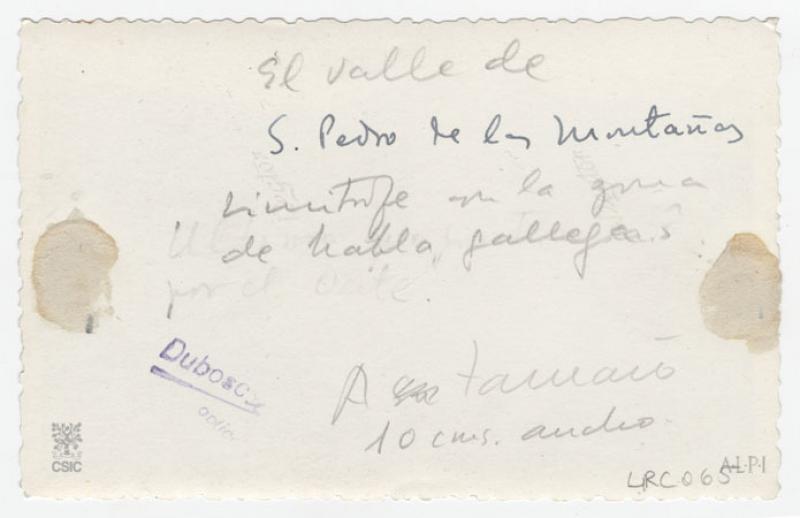 El valle de
S. Pedro de las Montañas
Limítrofe con la zona
de habla gallega.
por el
Dubosc
A tamaño
10 cms. ancho.
CSIC
A·L·P·I
LRC065